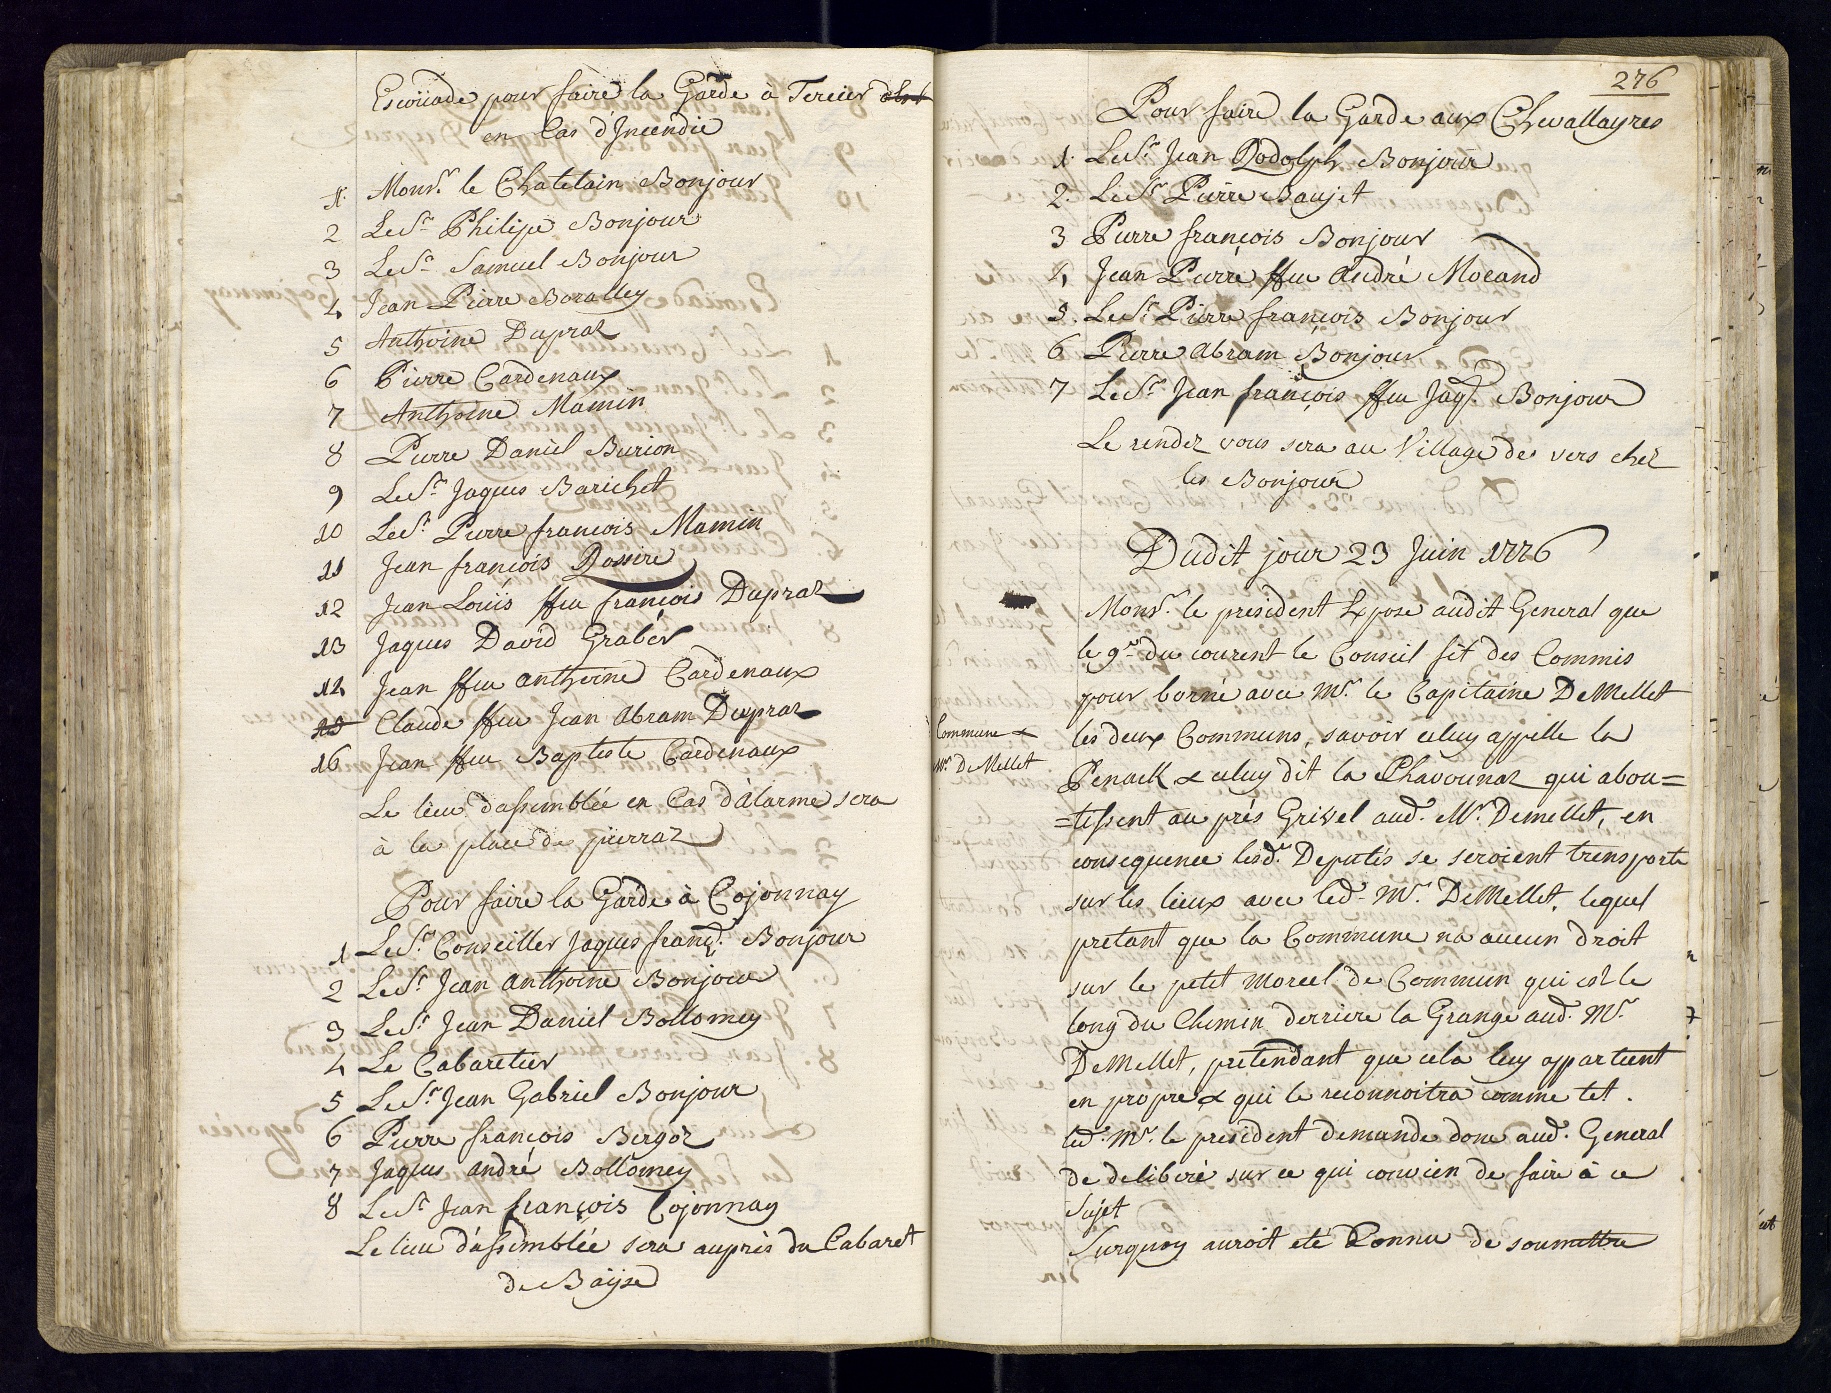 Escoüade pour faire la Garde a Tercier
en Cas d'Incendie
1. Monsr. le Chatelain Bonjour
2 Le Sr. Philipe Bonjour
3 Le Sr. Samuel Bonjour
4 Jean Pierre Boralley
5 Anthoine Dupraz
6 Pierre Cardenaux
7 Anthoine Mamin
8 Pierre Daniel Burion
9 Le Sr. Jaques Barichet
10 Le Sr. Pierre françois Mamin
11 Jean françois Dossire
12 Jean Louïs ffeu françois Dupraz
13 Jaques David Graber
14 Jean ffeu anthoine Cardenaux
15 Claude ffeu Jean Abram Dupraz
16 Jean ffeu Baptiste Cardenaux
Le lieu d'assemblée en Cas d'Alarme sera
à la place de pierraz
Pour faire la Garde à Cojonnay
1 Le Sr. Conseiller Jaques franç. Bonjour
2 Le Sr. Jean Anthoine Bonjour
3 Le Sr. Jean Daniel Bollomey
4 Le Cabaretier
5 Le Sr. Jean Gabriel Bonjour
6 Pierre françois Bergoz
7 Jaques andré Bollomey
8 Le Sr. Jean françois Cojonnay
Le lieu d'assemblée sera auprès du Cabaret
de Baÿse
276
Pour faire la Garde aux Chevallayres
1. Le Sr. Jean Rodolph Bonjour
2. Le Sr. Pierre Baujet
3 Pierre françois Bonjour
4 Jean Pierre ffeu André Morand
5. Le Sr. Pierre françois Bonjour
6 Pierre Abram Bonjour
7 Le Sr. Jean françois ffeu Jaq. Bonjour
Le rendez vous sera au Village de vers chez
les Bonjour
Dudit jour 23 Juin 1776
Monsr. le president Expose audit General que
le 9e. du courent le Conseil fit des Commis
pour borné avec Mr. le Capitaine DeMellet
Commune &
Mr. DeMellet
les deux Communs, savoir celuy appellé la
Penack & celuy dit la Chavounaz qui abou=
=tissent au prés Grivel aud. Mr. Demellet, en
consequence lesd. Deputés se seroient transporté
sur les lieux avec led. Mr. DeMellet, lequel
pretant que la Commune na aucun droit
sur le petit morcel de Commun qui est le
long du Chemin derriere la Grange aud. Mr.
DeMellet, pretendant que cela luy appartient
en propre & qui le reconnoitra comme tel.
led. Mr. le president demande donc aud. General
de deliberé sur ce qui convien de faire à ce
Sujet
Surquoy auroit eté Connu de soumettre